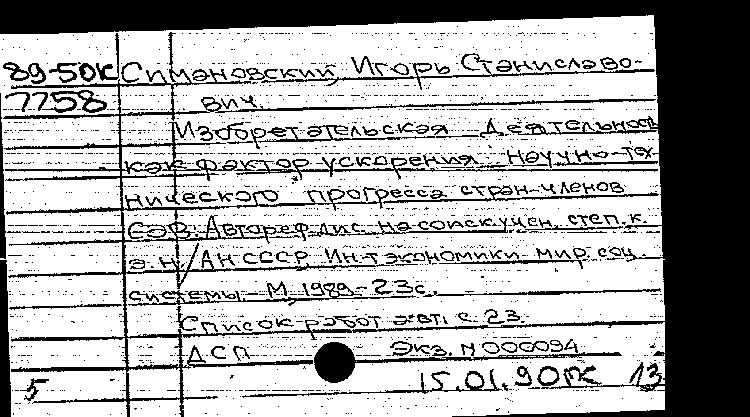 89-50К Симановский, Игорь Станиславо-
7758 вич.
Изобретательская деятельность
как фактор ускорения научно-тех-
нического прогресса стран-членов
СЭВ: Автореф. дис. на соиск. учен. степ. к.
э. н. / АН СССР, Ин-т экономики мир. соц.
системы. - М., 1989. - 23 с.
Список работ авт.: с. 23.
ДСП Экз. N 000094
5 15.01.90 ПК 13